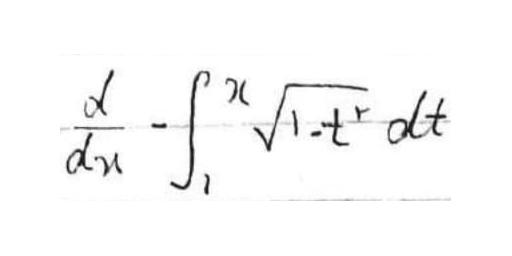 d/dx - ∫₁ˣ √(1-t^۲) dt